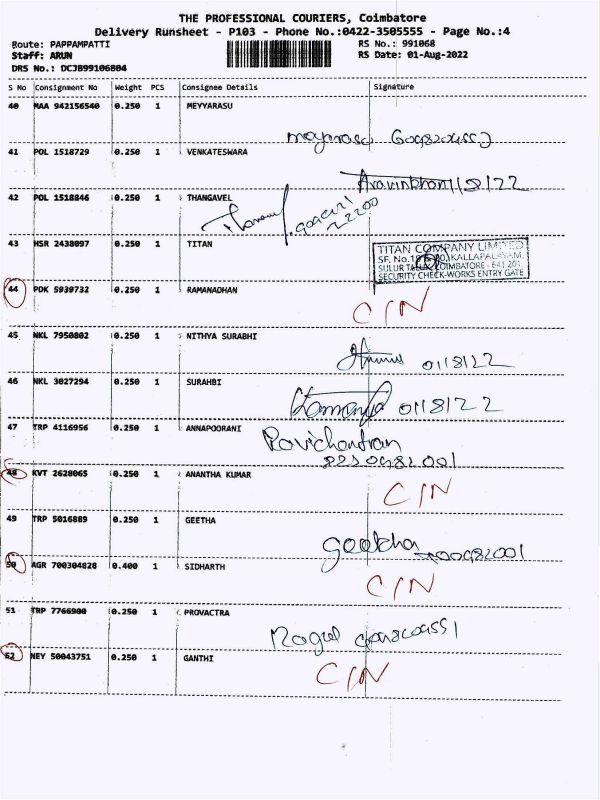 THE PROFESSIONAL COURIERS, Coimbatore
Delivery Runsheet - P103 - Phone No.:0422-3505555 - Page No.:4
Route: PAPPAMPATTI RS No.: 991068
Staff: ARUN RS Date: 01-Aug-2022
DRS No.: DCJB99106804
S No Consignment No Weight PCS Consignee Details Signature
40 MAA 942156540 0.250 1 MEYYARASU
41 POL 1518729 0.250 1 VENKATESWARA
42 POL 1518846 0.250 1 THANGAVEL
43 HSR 2438097 0.250 1 TITAN
TITAN COMPANY LIMITED
SF. No. KALLAPALAYAM,
SULUR TALUK, COIMBATORE - 641 201
SECURITY CHECK-WORKS ENTRY GATE
44 PDK 5939732 0.250 1 RAMANADHAN
C/N
45 NKL 7950802 0.250 1 NITHYA SURABHI
01/8/22
46 NKL 3027294 0.250 1 SURAHBI
01/8/22
47 TRP 4116956 0.250 1 ANNAPOORANI
Ravichandran
48 KVT 2628065 0.250 1 ANANTHA KUMAR
C/N
49 TRP 5016889 0.250 1 GEETHA
geetha
50 AGR 700304828 0.400 1 SIDHARTH
C/N
51 TRP 7766900 0.250 1 PROVACTRA
52 NEY 50043751 0.250 1 GANTHI
C/N